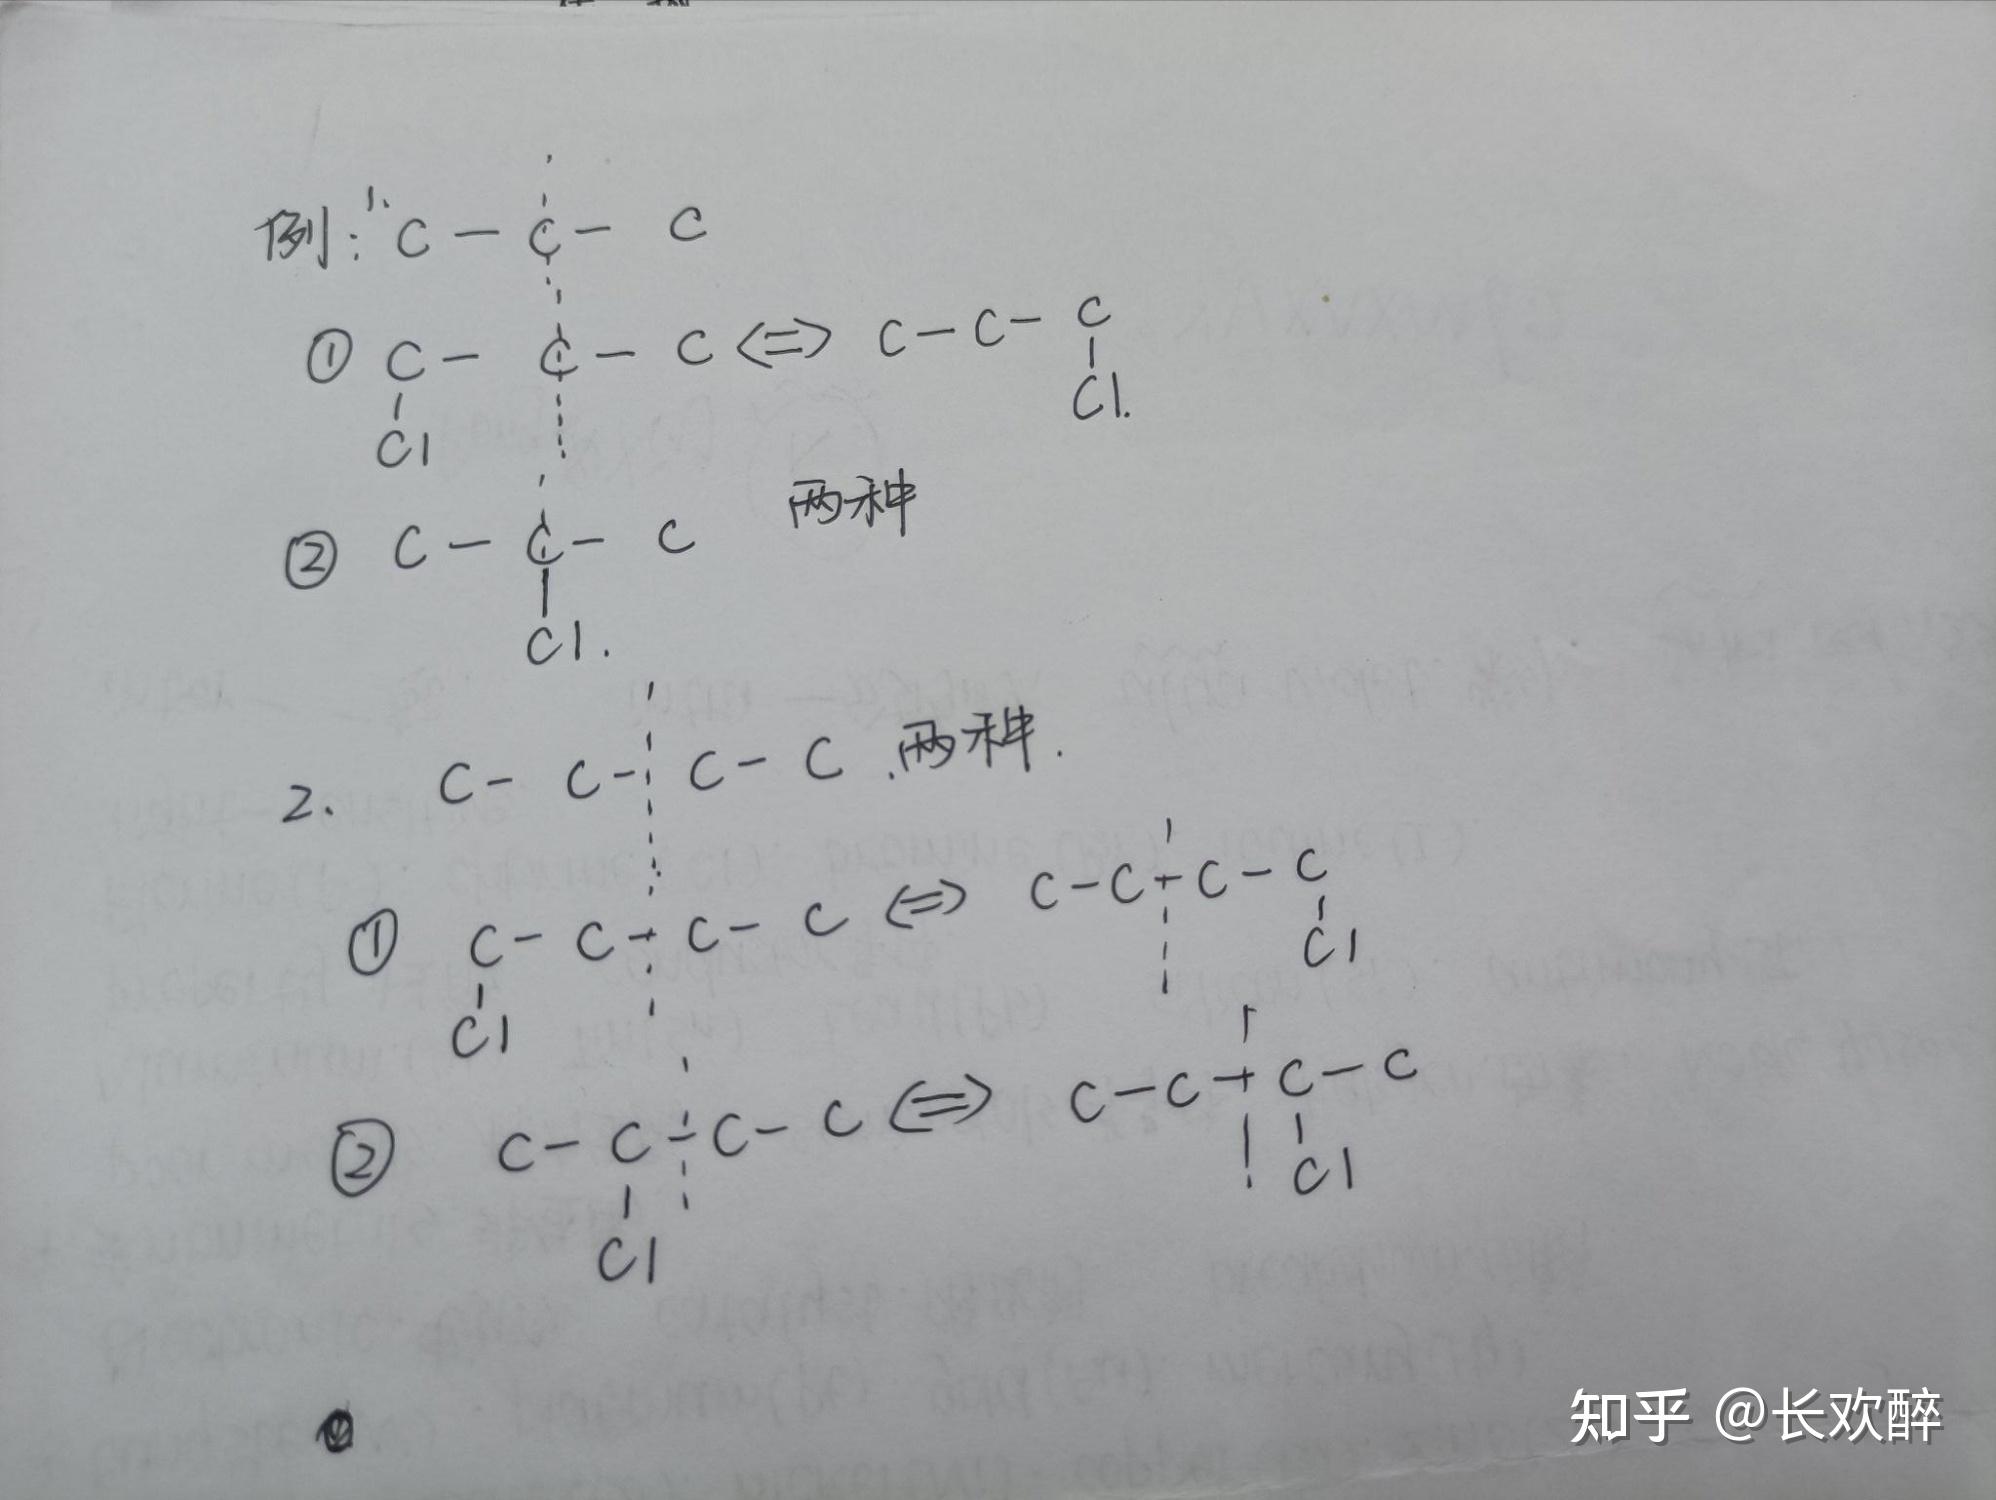 例: 1. C — C — C
① C — C — C <=> C — C — C
Cl Cl.
② C — C — C 两种
Cl.
2. C — C — C — C . 两种.
① C — C — C — C <=> C — C — C — C
Cl Cl
② C — C — C — C <=> C — C — C — C
Cl Cl
知乎 @长欢醉